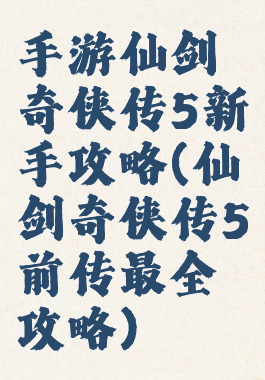 手游仙剑
奇侠传5新
手攻略(仙
剑奇侠传5
前传最全
攻略)